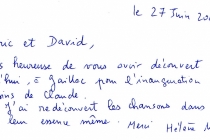 le 27 Juin 20
ric et David,
s heureuse de vous avoir découvert
'hui, à Gaillac pour l'inauguration
ons de Claude.
J'ai redécouvert les chansons dans
leur essence même. Merci Hélène M